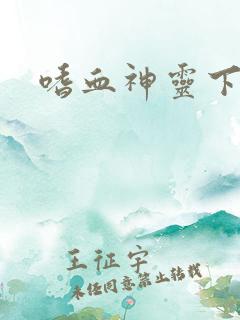 嗜血神靈下
王征宇
未经同意禁止转载